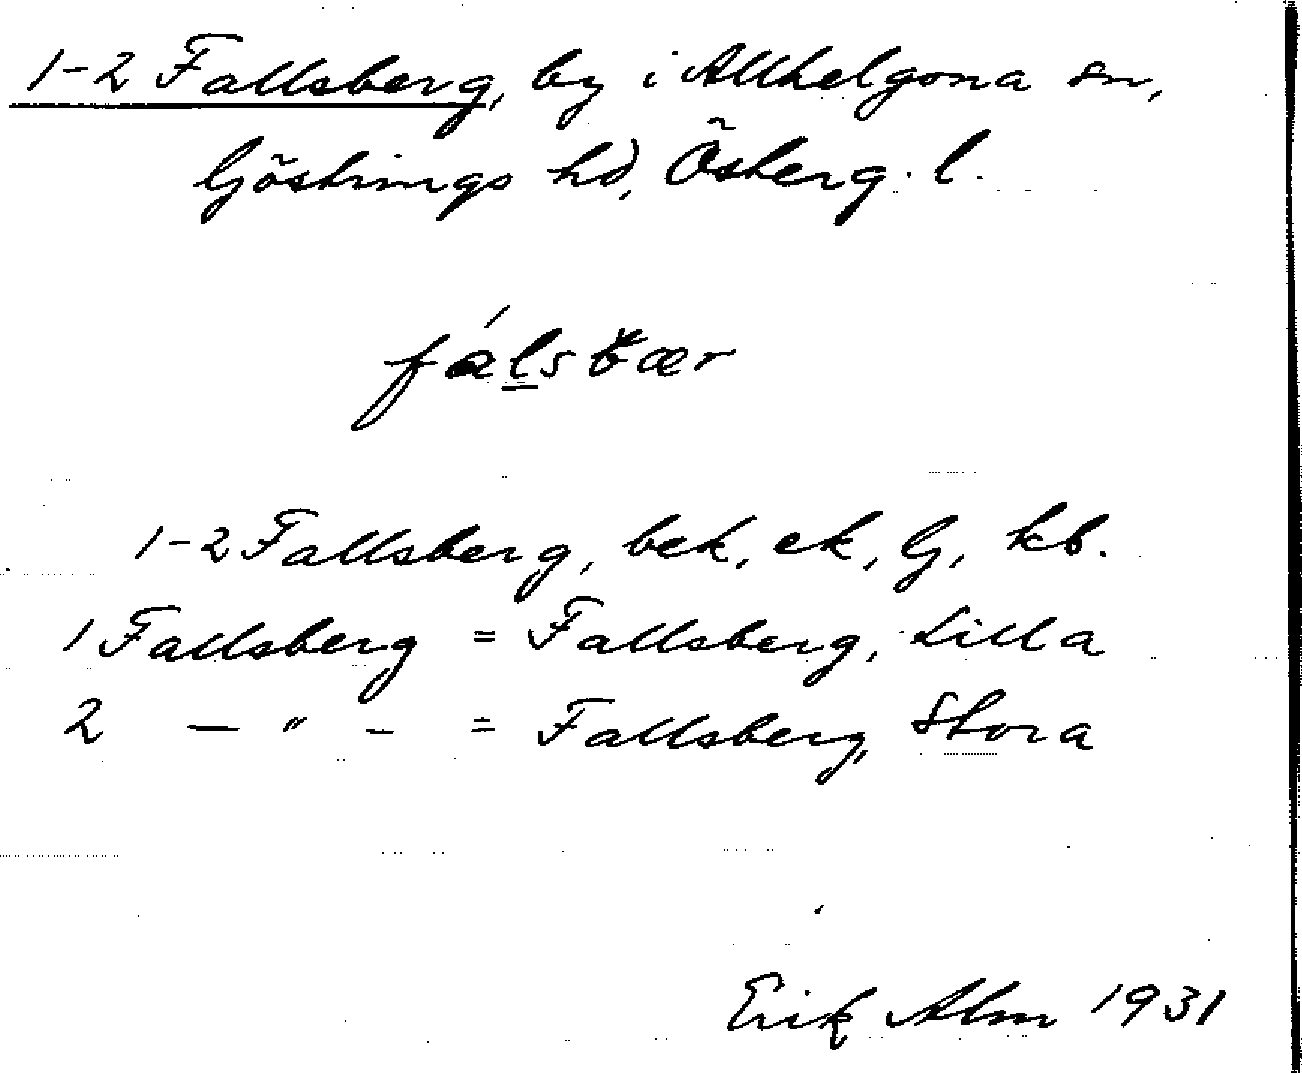 1-2 Fallsberg, by i Allhelgona sn,
Göstrings hd, Österg. l.
1-2 Fallsberg, bek, ek, G, kb.
1 Fallsberg = Fallsberg, Lilla
2 — " — = Fallsberg, Stora
Erik Alm 1931